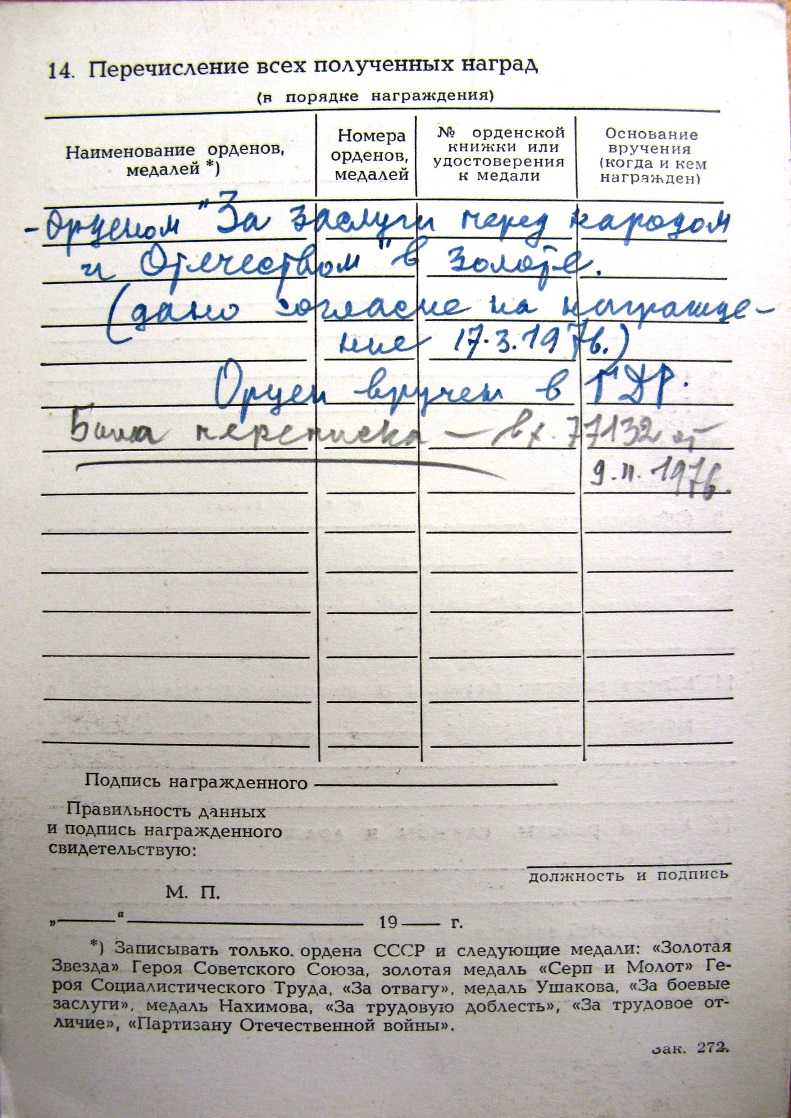 14. Перечисление всех полученных наград
(в порядке награждения)
Наименование орденов,
медалей *)
Номера
орденов,
медалей
№ орденской
книжки или
удостоверения
к медали
Основание
вручения
(когда и кем
награжден)
- Орденом "За заслуги перед народом
и Отечеством" в золоте.
(дано согласие на награжде-
ние 17.3.1976.)
Орден вручен в ГДР.
Была переписка — вх. 77132 от
9.II.1976.
Подпись награжденного
Правильность данных
и подпись награжденного
свидетельствую:
должность и подпись
М. П.
„ “ 19 г.
*) Записывать только ордена СССР и следующие медали: «Золотая
Звезда» Героя Советского Союза, золотая медаль «Серп и Молот» Ге-
роя Социалистического Труда, «За отвагу», медаль Ушакова, «За боевые
заслуги», медаль Нахимова, «За трудовую доблесть», «За трудовое от-
личие», «Партизану Отечественной войны».
Зак. 272.